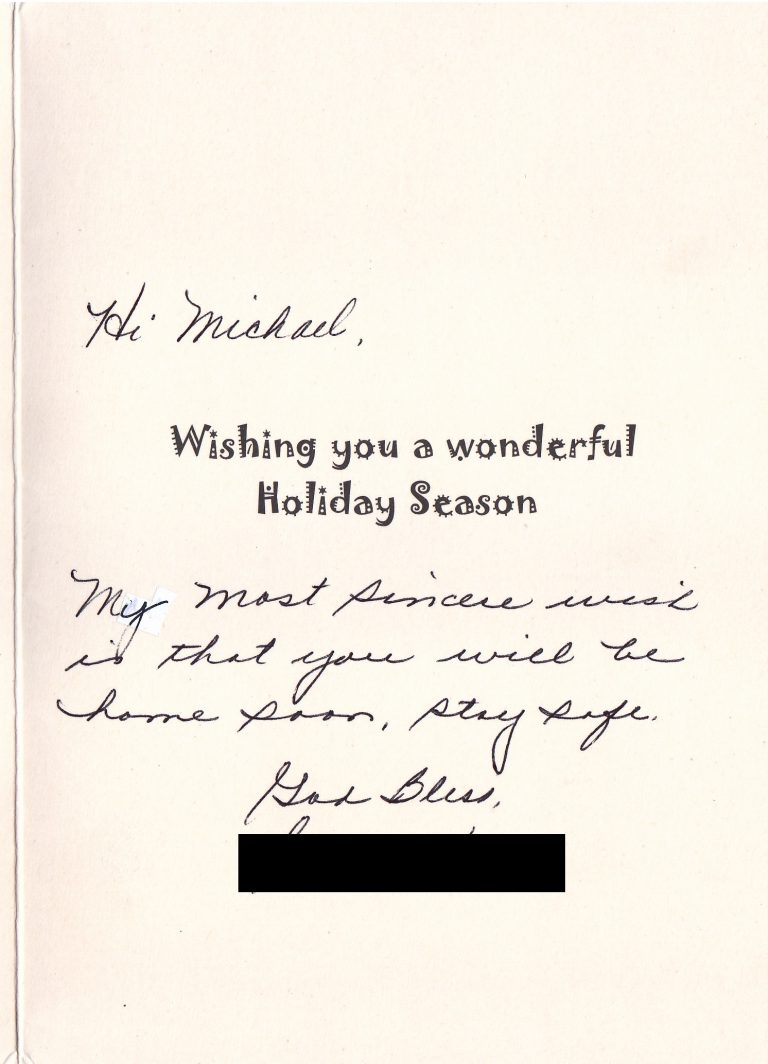 Hi Michael,
Wishing you a wonderful
Holiday Season
My most sincere wish
is that you will be
home soon, stay safe.
God Bless,